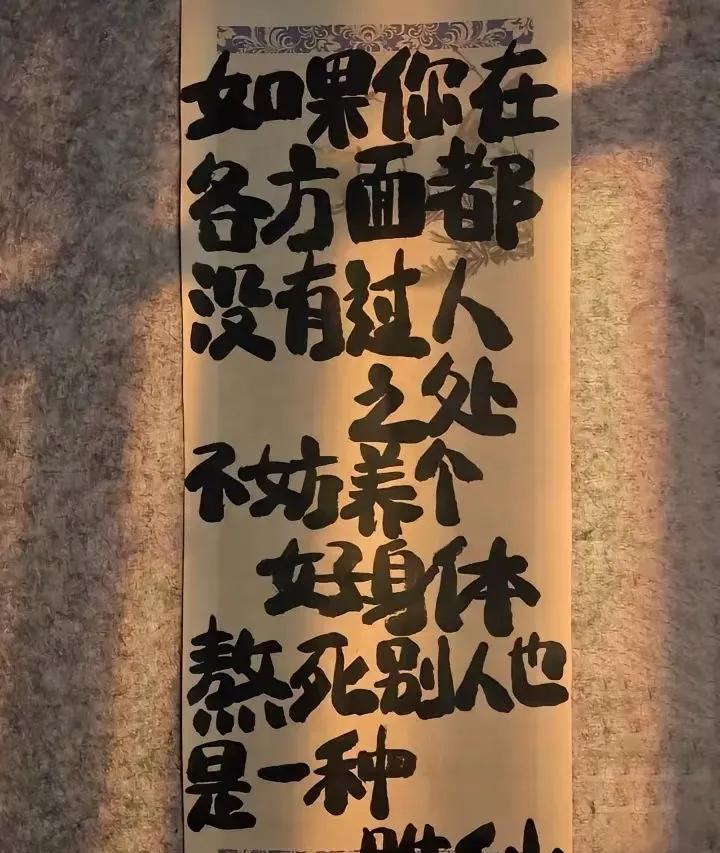 如果你在
各方面都
没有过人
之处
不妨养个
好身体
熬死别人也
是一种